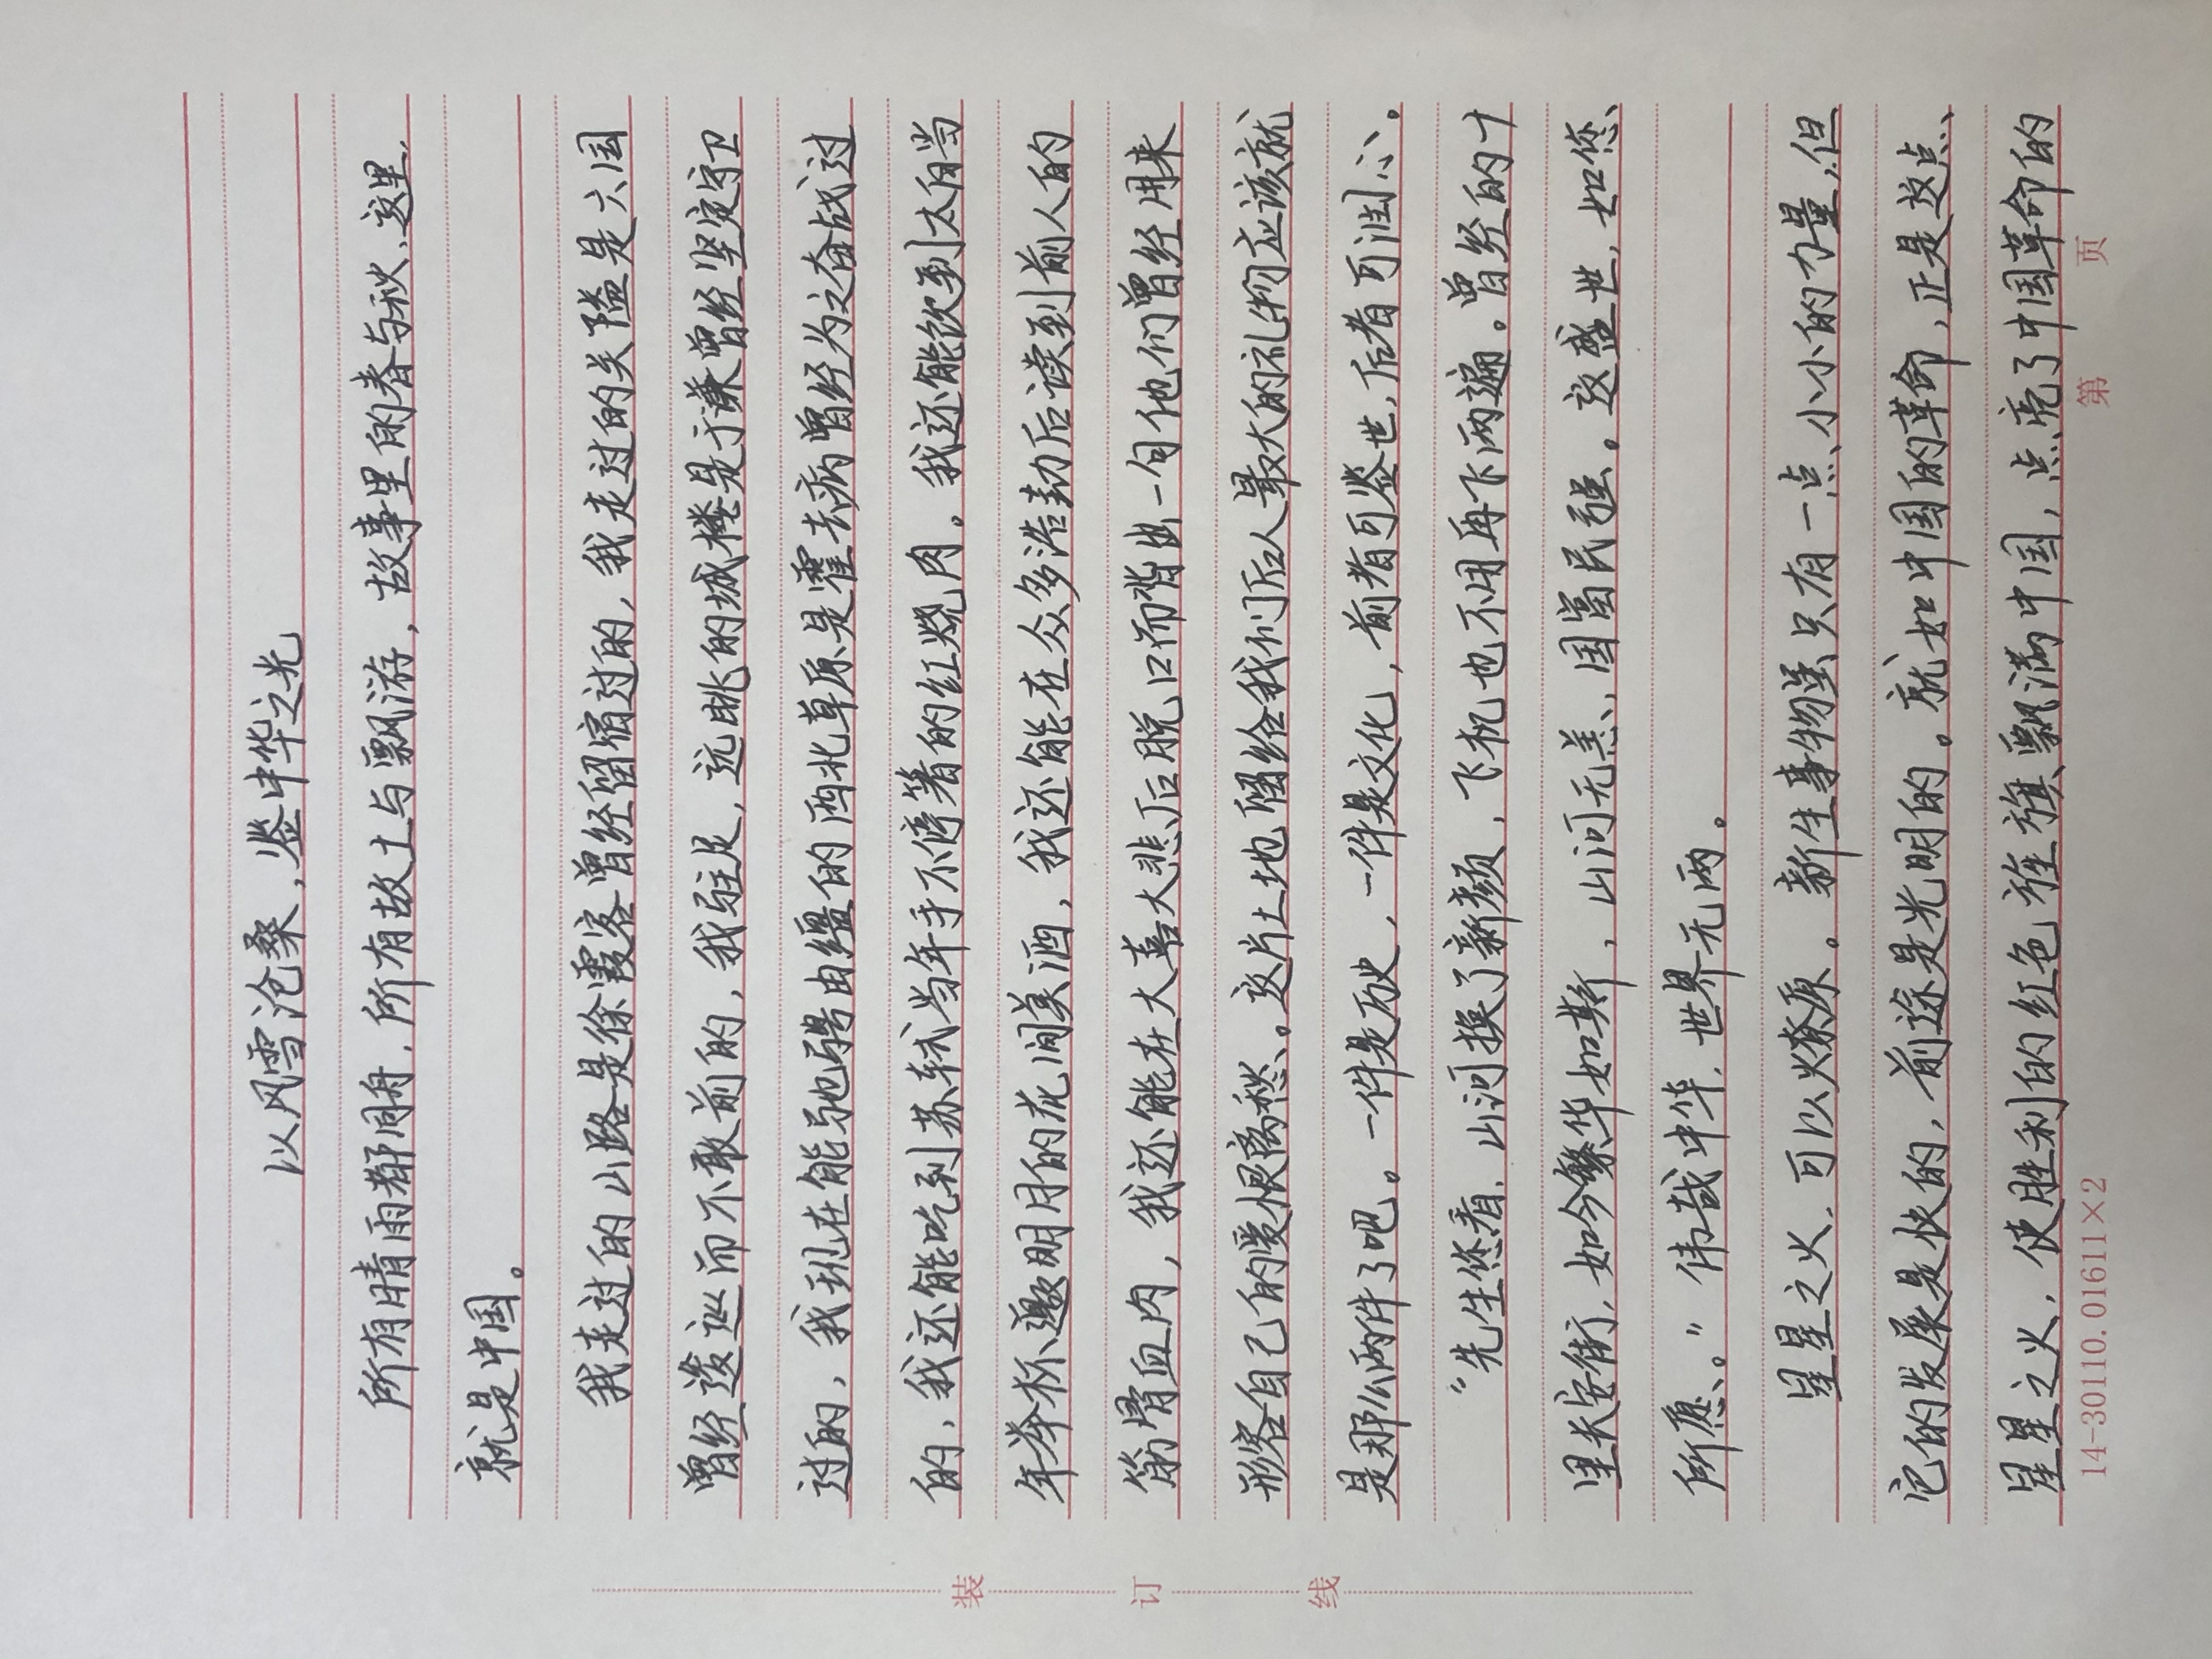 以风雪沧桑，鉴中华之光
所有晴雨都同舟，所有故土与飘游，故事里的春与秋，这里，
就是中国。
我走过的山路是徐霞客曾经留宿过的，我走过的关隘是六国
曾经逡巡而不敢前的，我驻足，远眺的城楼是于谦曾经坚定守卫
过的，我现在能驰骋由缰的西北草原是霍去病曾经为之奋战过
的，我还能吃到苏轼当年手不停箸的红烧肉。我还能饮到太白当
年举杯邀明月的花间美酒，我还能在众多浩劫后读到前人的
筋骨血肉，我还能在大喜大悲后脱口而背出一句他们曾经用来
形容自己的爱恨离愁。这片土地留给我们后人最大的礼物应该就
是那么两件了吧。一件是历史，一件是文化，前者可鉴世，后者可润心。
“先生您看，山河换了新颜，飞机也不用再飞两遍。曾经的十
里长安街，如今繁华如斯，山河无恙、国富民强。这盛世，如您
所愿。”伟哉中华，世界无两。
星星之火，可以燎原。新生事物虽只有一点小小的力量，但
它的发展是快的，前途是光明的。就如中国的革命，正是这点
星星之火，使胜利的红色旌旗飘满中国，点亮了中国革命的
14-30110.01611×2
第 页
装 订 线